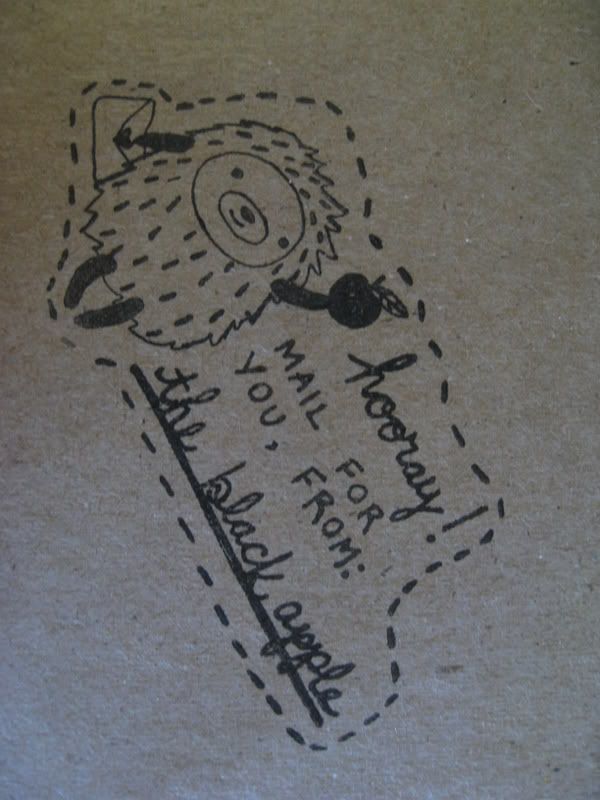 hooray!
MAIL FOR
YOU, FROM:
the black apple